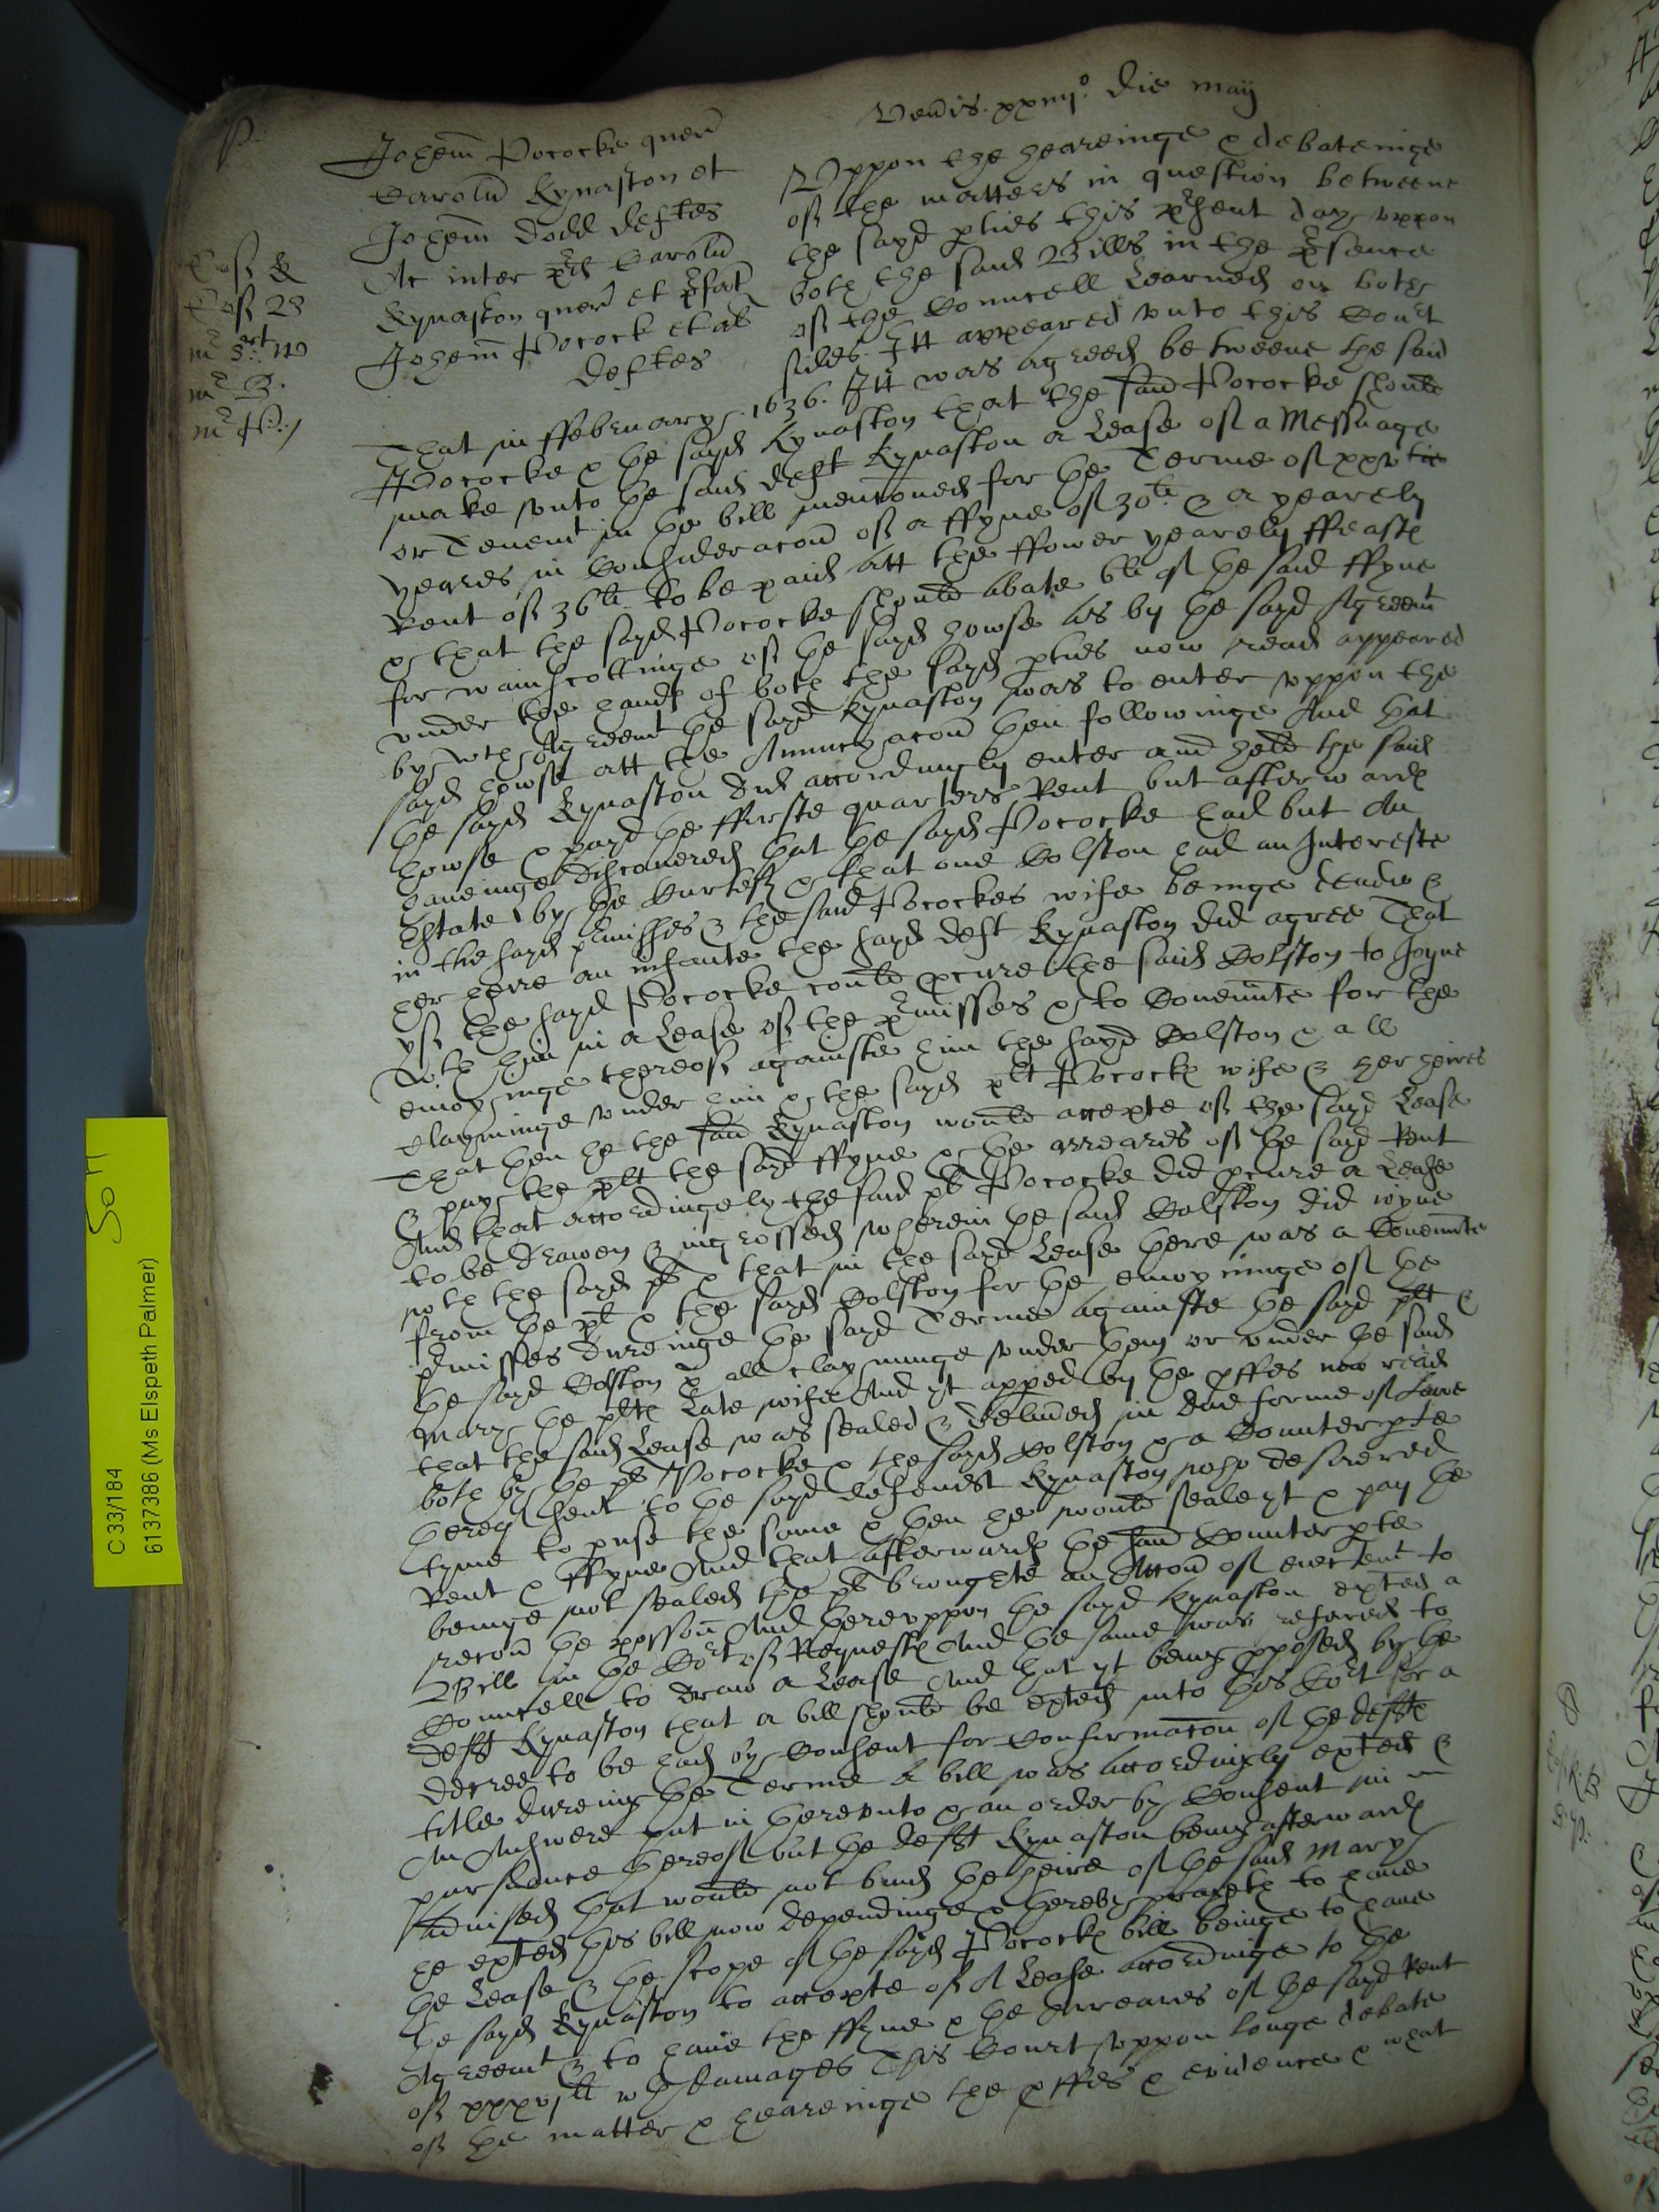 P.
Veneris xxiiijo. die maij
Johem Pococke quer
Carolu Kynaston et
Johem Dodd deftes
Ac inter pred Carolu
Kynaston quer et prefat
Johem Pocock et al
deftes
Uppon the heareinge & debateinge
of the matters in question betweene
the sayd pties this present day uppon
both the said Bills in the presence
of the Councell Learned on both
sides. Itt appeared unto this Court
That in ffebruary. 1636. Itt was agreed betweene the said
Pococke & the sayd Kynaston that the said Pococke should
make unto the said deft Kynaston a Lease of a Messuage
or Tenemt in the bill mentioned for the Terme of xxxtie
yeares in Consideracon of a ffyne of 30li & a yearely
Rent of 36li to be paid att the ffower yearely ffeasts
& that the sayd Pococke should abate 6li of the said ffyne
for wainscottinge of the sayd howse as by the sayd Agreemt
under the hands of both the sayd pties now read appeared
by wch Agreemt the sayd Kynaston was to enter uppon the
sayd howse att the Annunciacon then followinge And that
the sayd Kynaston did accordingly enter and held the said
howse & payd the ffirste quarters Rent but afterwards
haveinge discovered that the sayd Pococke had but An
Estate by the Curtesy & that one Colston had an Intereste
in the sayd premisses & the said Pocockes wife beinge deade &
her heire an infante the sayd deft Kynaston did agree That
yf the sayd Pococke could pcure the said Colston to Joyne
wth him in a Lease of the premisses & to Covennte for the
enioyinge thereof againste him the sayd Colston & all
clayminge under him & the sayd plt Pococks wife & her heires
That then he the said Kynaston would accepte of the sayd Lease
& pay the plt the sayd ffyne & the arreares of the sayd Rent
And that accordingely the said plt Pococke did pcure a Lease
to be drawen & ingrossed wherein the said Colston did ioyne
wth the sayd plt & that in the sayd Lease there was a Covennte
from the plt & the sayd Colston for the enioyninge of the
premisses dureinge the sayd Terme againste the sayd plt &
the sayd Colston & all clayminge under them or under the said
Mary the plts Late wife And yt apped by the prffes now read
that the said Lease was sealed & delived in due forme of Lawe
both by the plt Pococke & the sayd Colston & a Counterpte
thereof sent to the sayd defendt Kynaston who desiered
tyme to puse the same & then he would seale yt & pay the
Rent & ffyne And that afterwards the said Counterpte
beinge not sealed the plt broughte an Accon of eiectemt to
recov the possion And thereuppon the sayd Kynaston exhited a
Bill in the Cort of Requests And the same was refered to
Councell to draw a Lease And that yt being pposed by the
deft Kynaston that a bill should be exhited into this Cort for a
decree to be had by Consent for Confirmacon of the defts
title dureing the Terme A bill was accordingly exhited &
An Answere put in thereunto & an order by Consent in
pursuance thereof but the deft Kynaston being afterwards
Advised that would not bind the heire of the said Mary
he exhited this bill now dependinge & thereby prayeth to have
the Lease & the scope of the sayd Pococks bill beinge to have
the sayd Kynaston to accepte of A Lease accordinge to the
Agreemt & to have the ffyne & the Arreares of the sayd Rent
of xxxvjli wth damages This Court uppon longe debate
of the matter & heareinge the prffes & evidence & what
C 33/184
6137386 (Ms Elspeth Palmer)